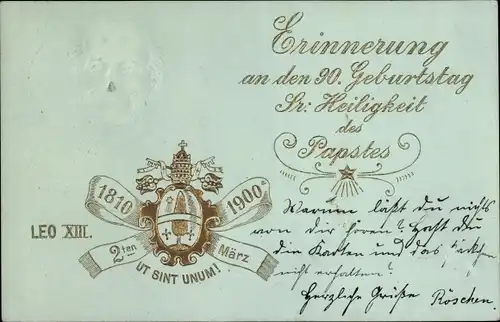 Erinnerung
an den 90. Geburtstag
Sr: Heiligkeit
des
Papstes
1810 1900
LEO XIII.
2ten März
UT SINT UNUM!
Warum läßt du nichts
von dir hören? Hast du
die Karten und das Päckchen
nicht erhalten?
Herzliche Grüße Röschen.